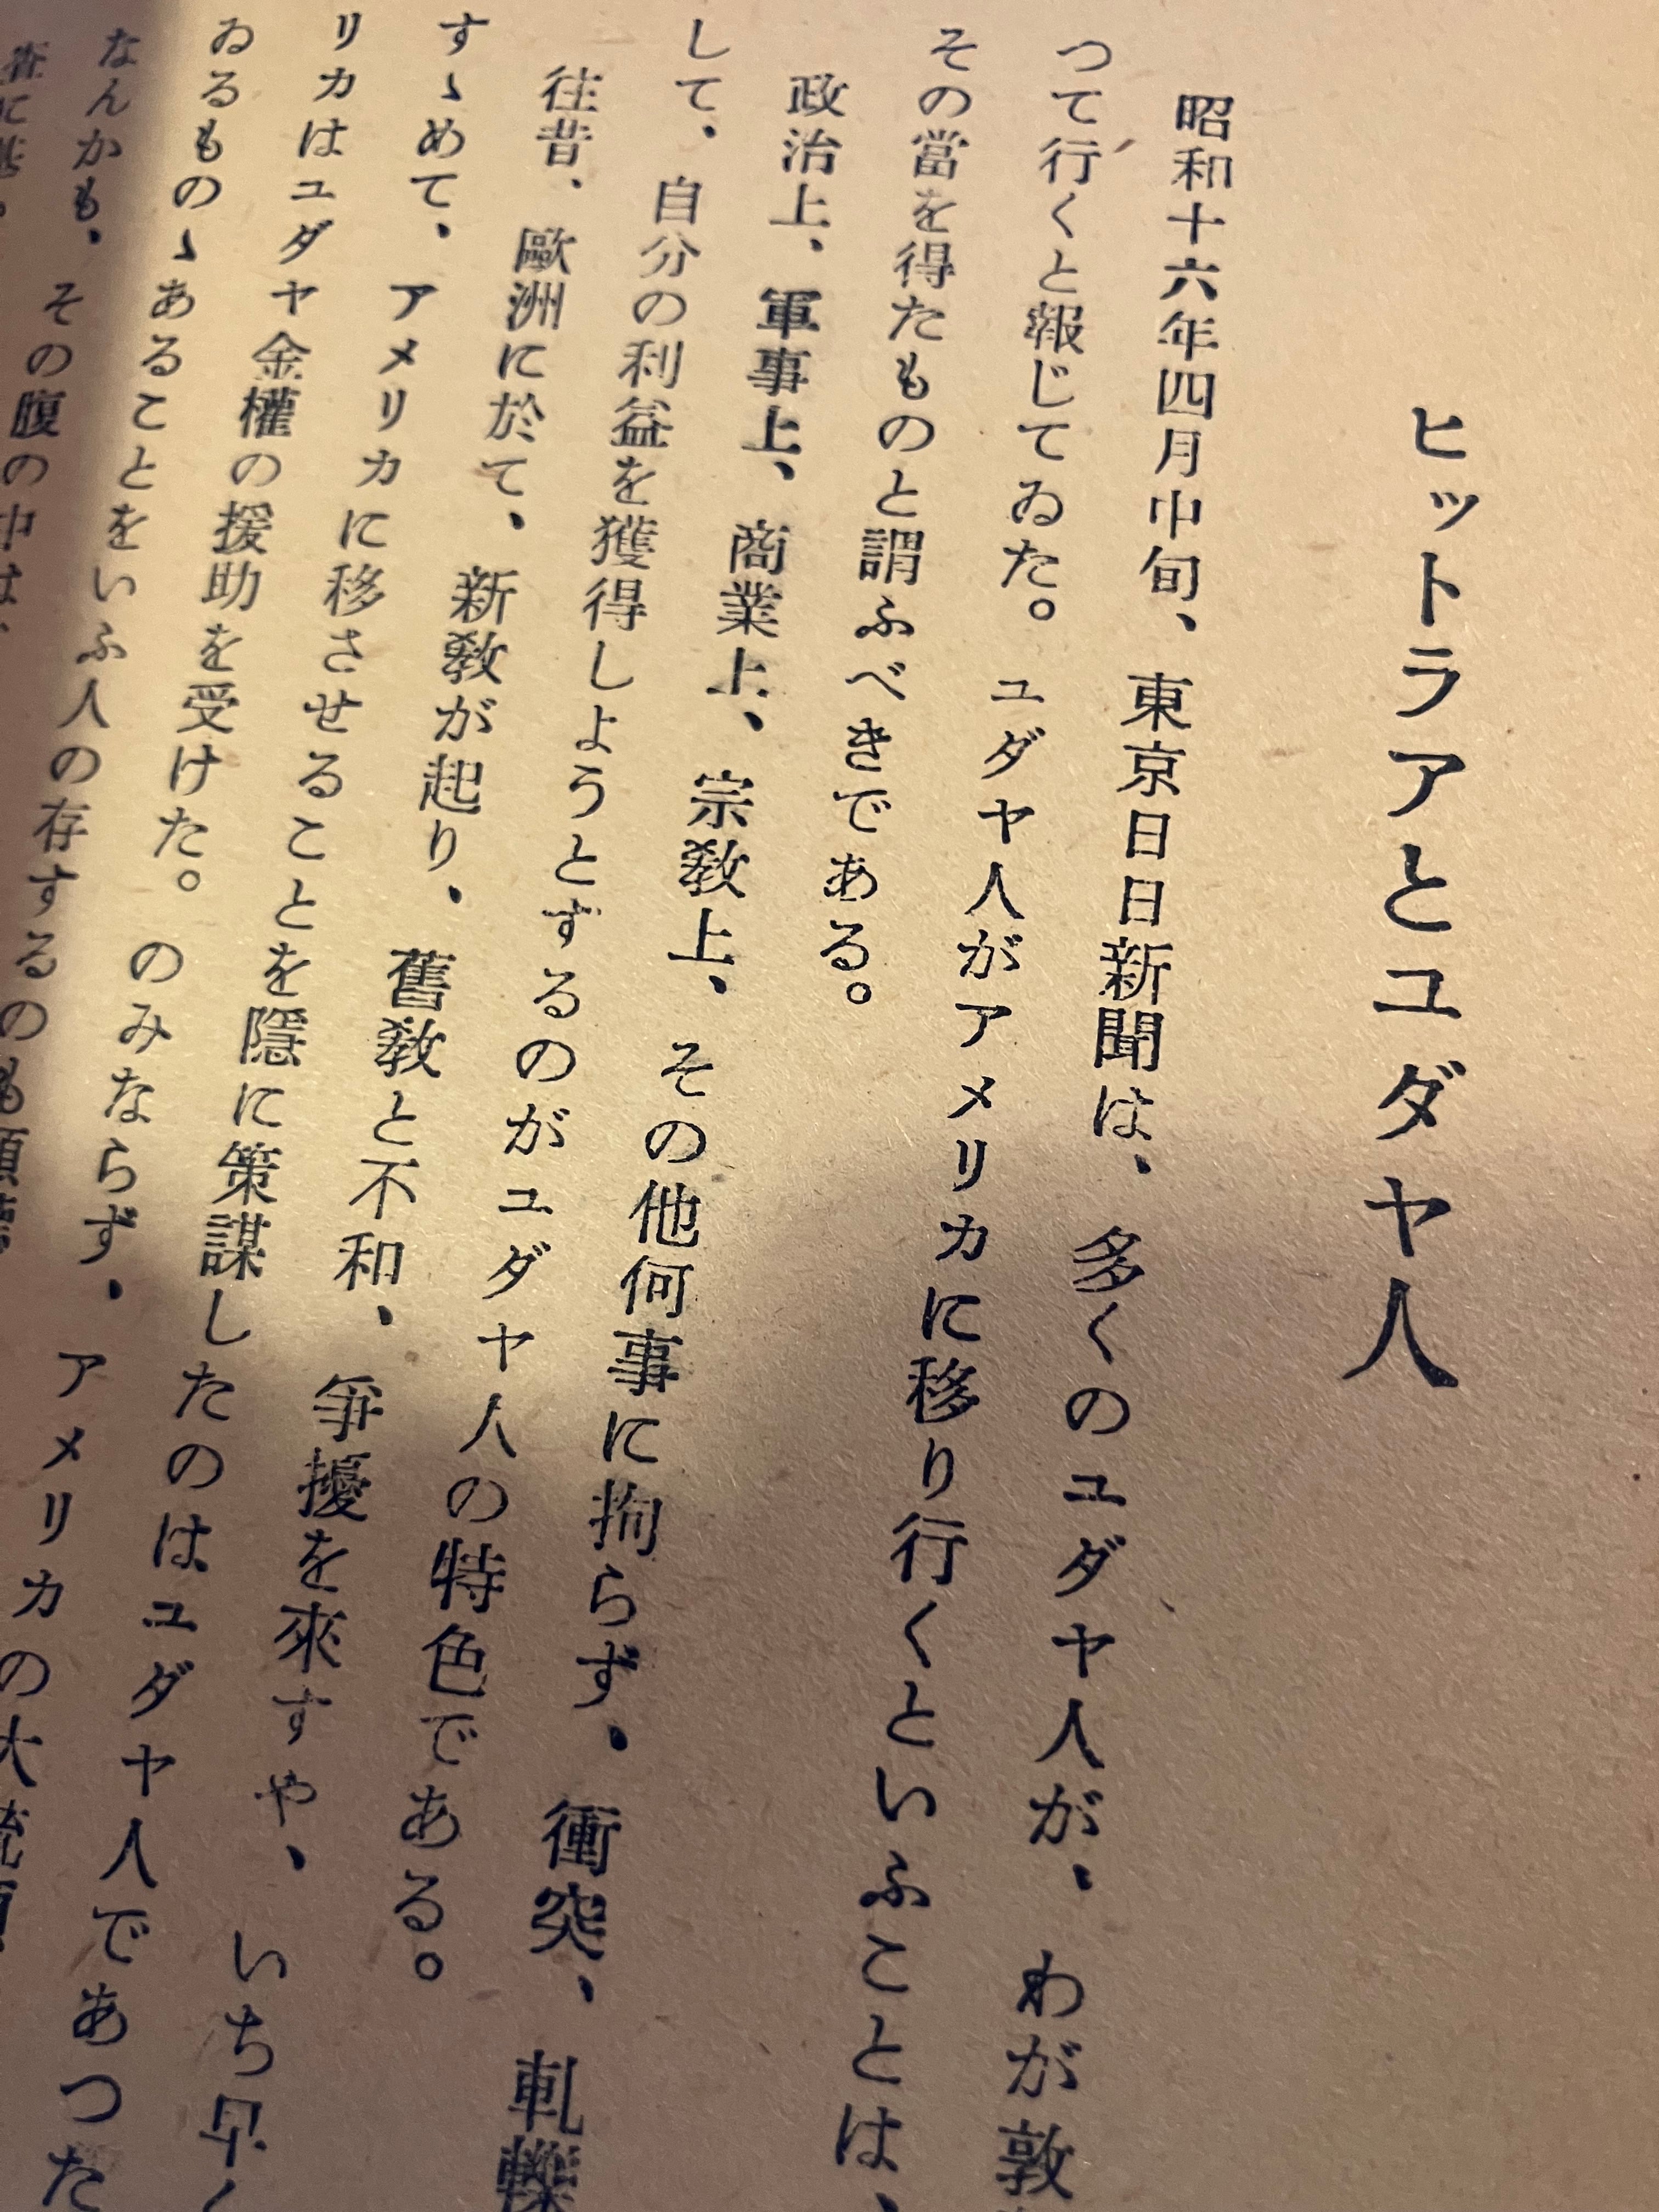 ヒットラアとユダヤ人
昭和十六年四月中旬、東京日日新聞は、多くのユダヤ人が、わが敦
つて行くと報じてゐた。ユダヤ人がアメリカに移り行くといふことは、
その當を得たものと謂ふべきである。
政治上、軍事上、商業上、宗敎上、その他何事に拘らず、衝突、軋轢
して、自分の利益を獲得しようとするのがユダヤ人の特色である。
往昔、歐洲に於て、新敎が起り、舊敎と不和、爭擾を來すや、いち早く
すゝめて、アメリカに移させることを隱に策謀したのはユダヤ人であつた
リカはユダヤ金權の援助を受けた。のみならず、アメリカの大統領
ゐるものゝあることをいふ人の存するのも
なんかも、その腹の中は、